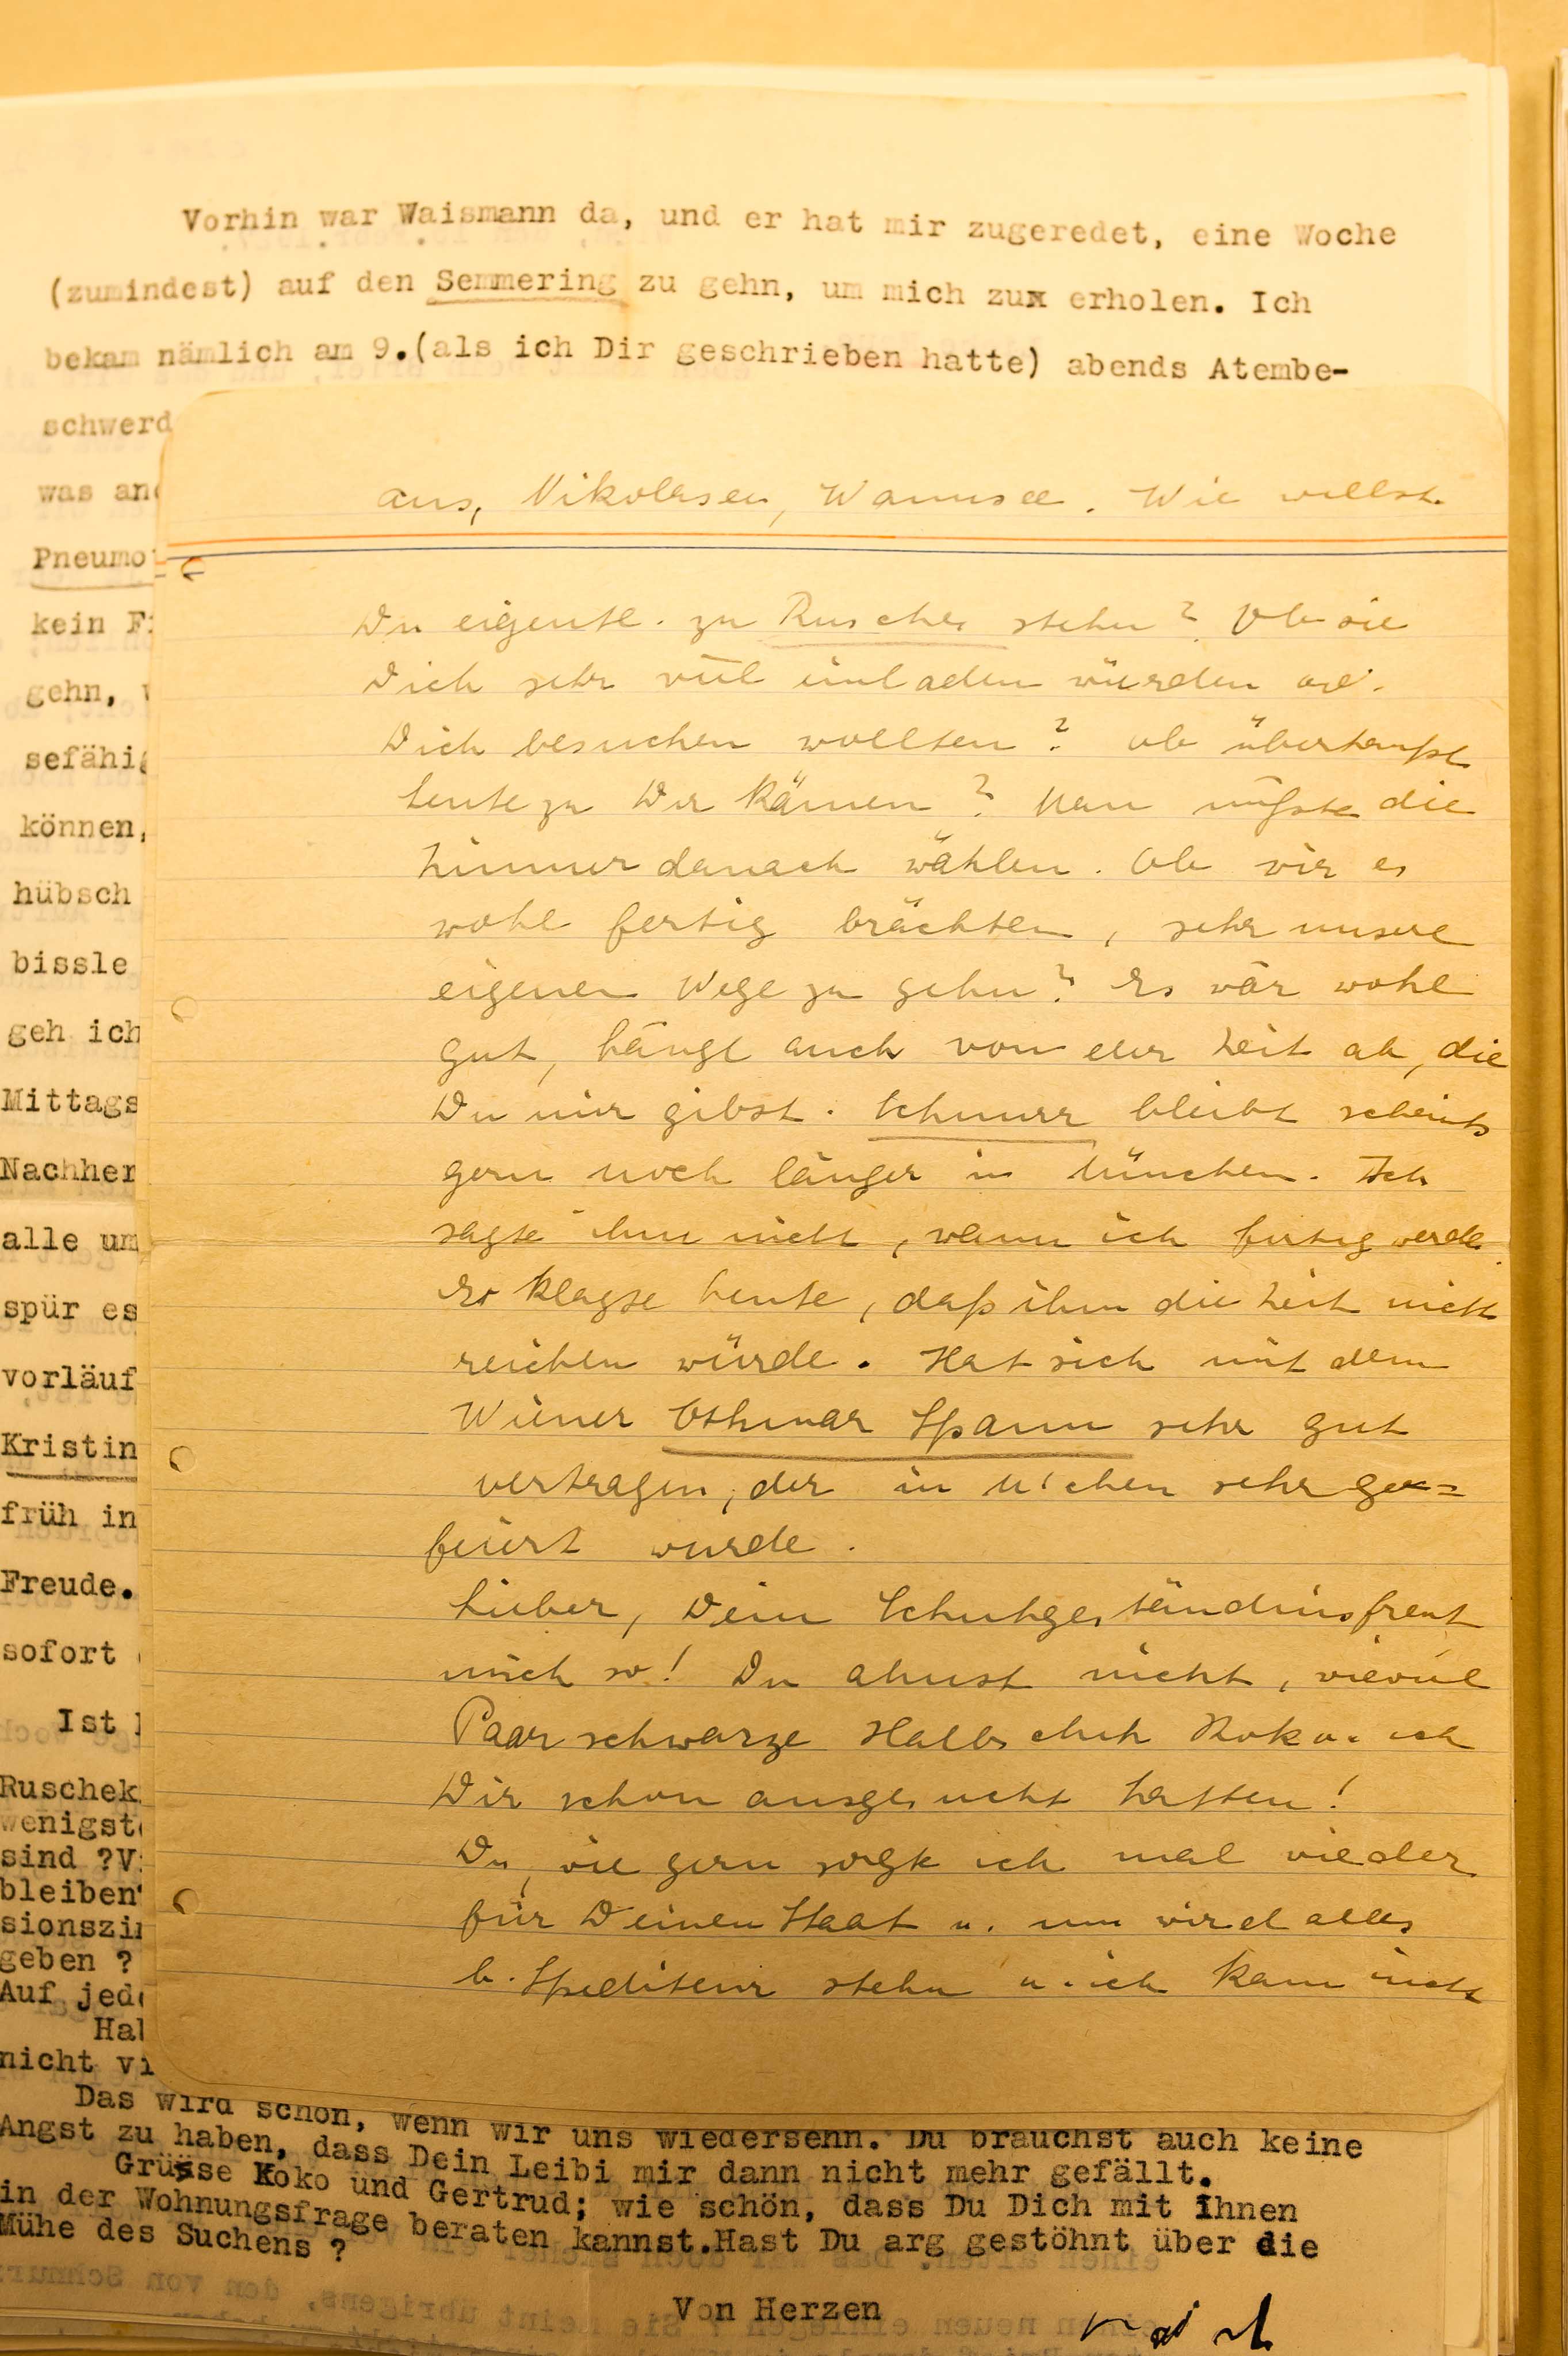 Vorhin war Waismann da, und er hat mir zugeredet, eine Woche
(zumindest) auf den Semmering zu gehn, um mich zux erholen. Ich
bekam nämlich am 9.(als ich Dir geschrieben hatte) abends Atembe-
schwerd
was an
Pneumo
kein F
gehn,
sefähig
können,
hübsch
bissle
geh ich
Mittags
Nachher
alle um
spür es
vorläuf
Kristin
früh in
Freude.
sofort
Ist
Ruschek
wenigst
sind ?V
bleiben
sionszi
geben ?
Auf jede
Hal
nicht vi
aus, Nikolassee, Wannsee. Wie willst
Du eigentl. zu Ruscheks stehn? Ob sie
Dich sehr viel einladen würden od.
Dich besuchen wollten? Ob überhaupt
Leute zu Dir kämen? Man müßte die
Zimmer danach wählen. Ob wir es
wohl fertig brächten, sehr unsere
eigenen Wege zu gehn? Es wär wohl
gut, hängt auch von der Zeit ab, die
Du mir gibst. Schnurr bleibt scheints
gern noch länger in München. Ich
sagte ihm nicht, wann ich fertig werde.
Er klagte heute, daß ihm die Zeit nicht
reichen würde. Hat sich mit dem
Wiener Othmar Spann sehr gut
vertragen, der in M'chen sehr ge=
feiert wurde.
Lieber, Dein Schuhgeständnis freut
mich so! Du ahnst nicht, wieviel
Paar schwarze Halbschuh Koko u. ich
Dir schon ausgesucht hatten!
Du, wie gern sorgte ich mal wieder
für Deinen Staat u. nun wird alles
b. Spediteur stehn u. ich kann nicht
Das wird schön, wenn wir uns wiedersehn. Du brauchst auch keine
Angst zu haben, dass Dein Leibi mir dann nicht mehr gefällt.
Grüsse Koko und Gertrud; wie schön, dass Du Dich mit ihnen
in der Wohnungsfrage beraten kannst.Hast Du arg gestöhnt über die
Mühe des Suchens ?
Von Herzen